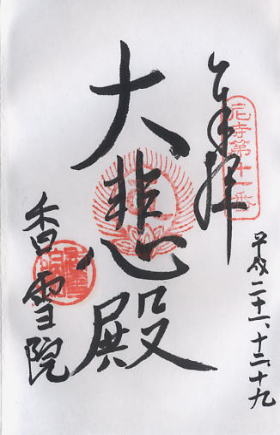 奉拝
平成二十一十二十九
大悲殿
香雪院